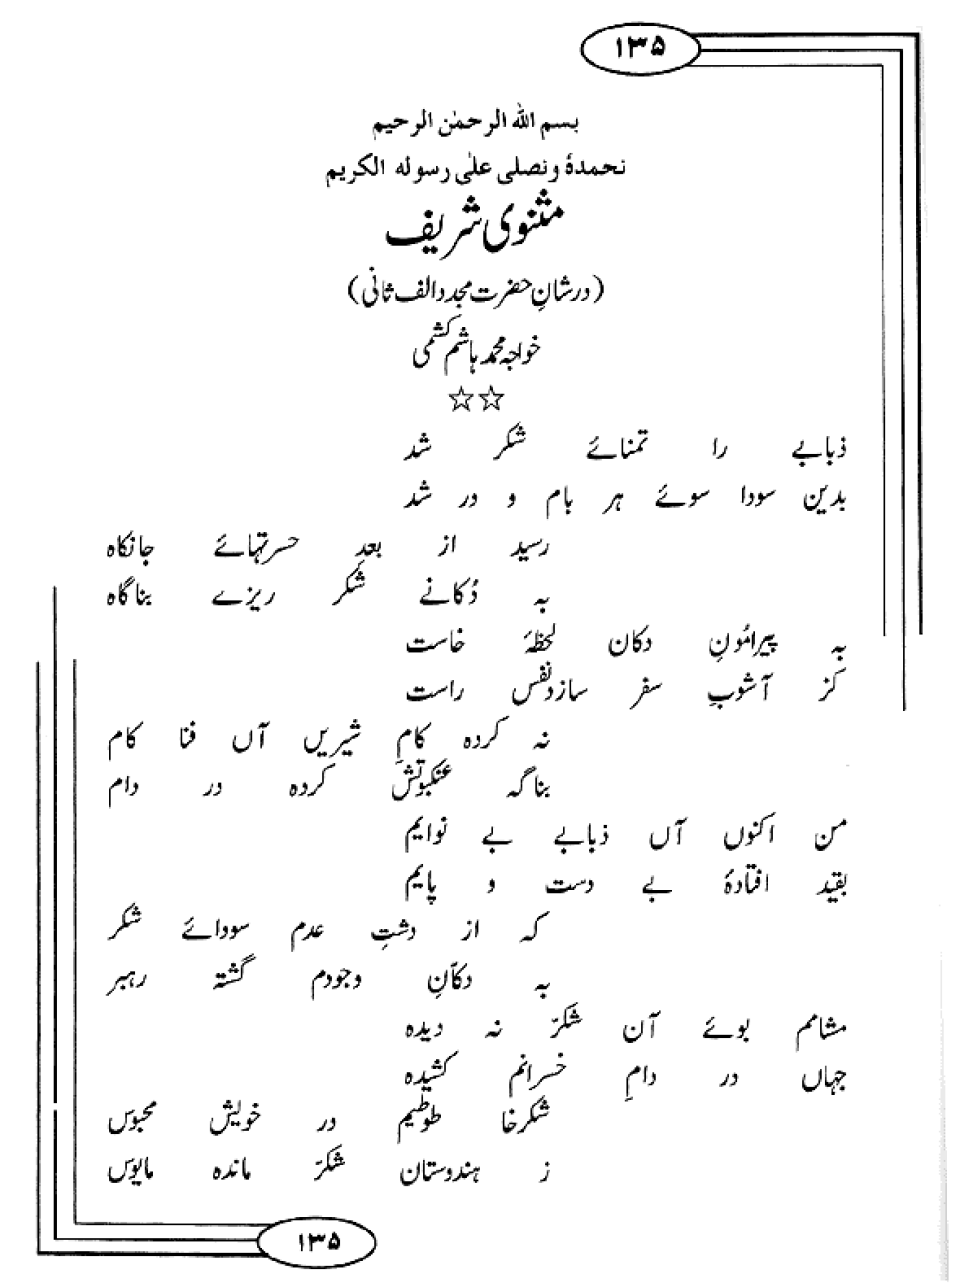 ۱۳۵
بسم الله الرحمٰن الرحیم
نحمدہٗ ونصلی علیٰ رسولہ الکریم
مثنوی شریف
(در شانِ حضرت مجدد الف ثانی)
خواجہ محمد ہاشم کشمی
☆☆
ذبابے را تمنائے شکر شد
بدین سودا سوئے ہر بام و در شد
رسید از بعدِ حسرتہائے جانکاہ
بہ دُکانے شکر ریزے بناگاہ
بہ پیرامُونِ دکان لحظۂ خاست
کز آشوبِ سفر سازد نفس راست
نہ کردہ کامِ شیریں آں فنا کام
بناگہ عنکبوتش کردہ در دام
من اکنوں آں ذبابے بے نوایم
بقید افتادۂ بے دست و پایم
کہ از دشتِ عدم سودائے شکر
بہ دکانِ وجودم گشتہ رہبر
مشامم بوئے آن شکرّ نہ دیدہ
جہاں در دامِ خسرانم کشیدہ
شکرخا طوطیم در خویش محبوس
ز ہندوستان شکرّ ماندہ مایوس
۱۳۵